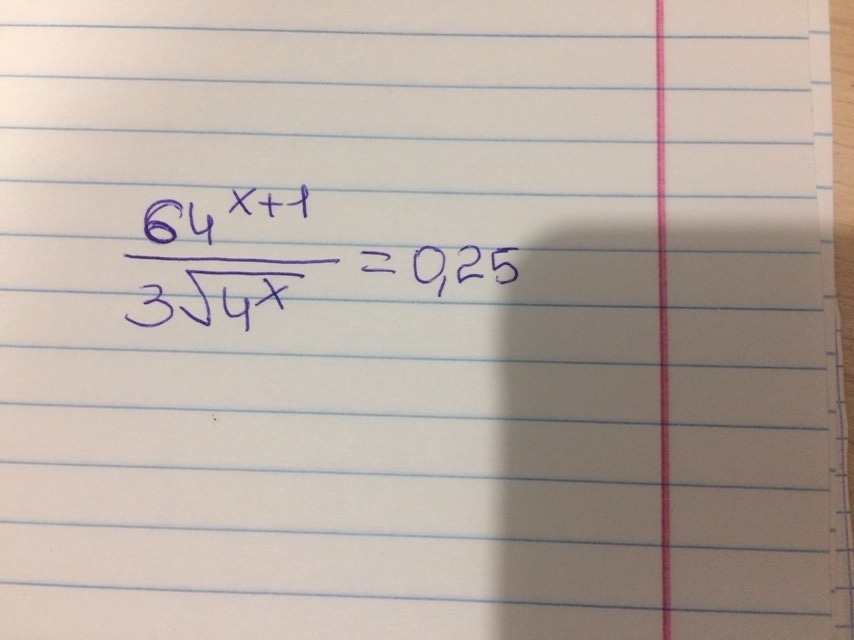 64^{x+1}
/ 3√4^x = 0,25